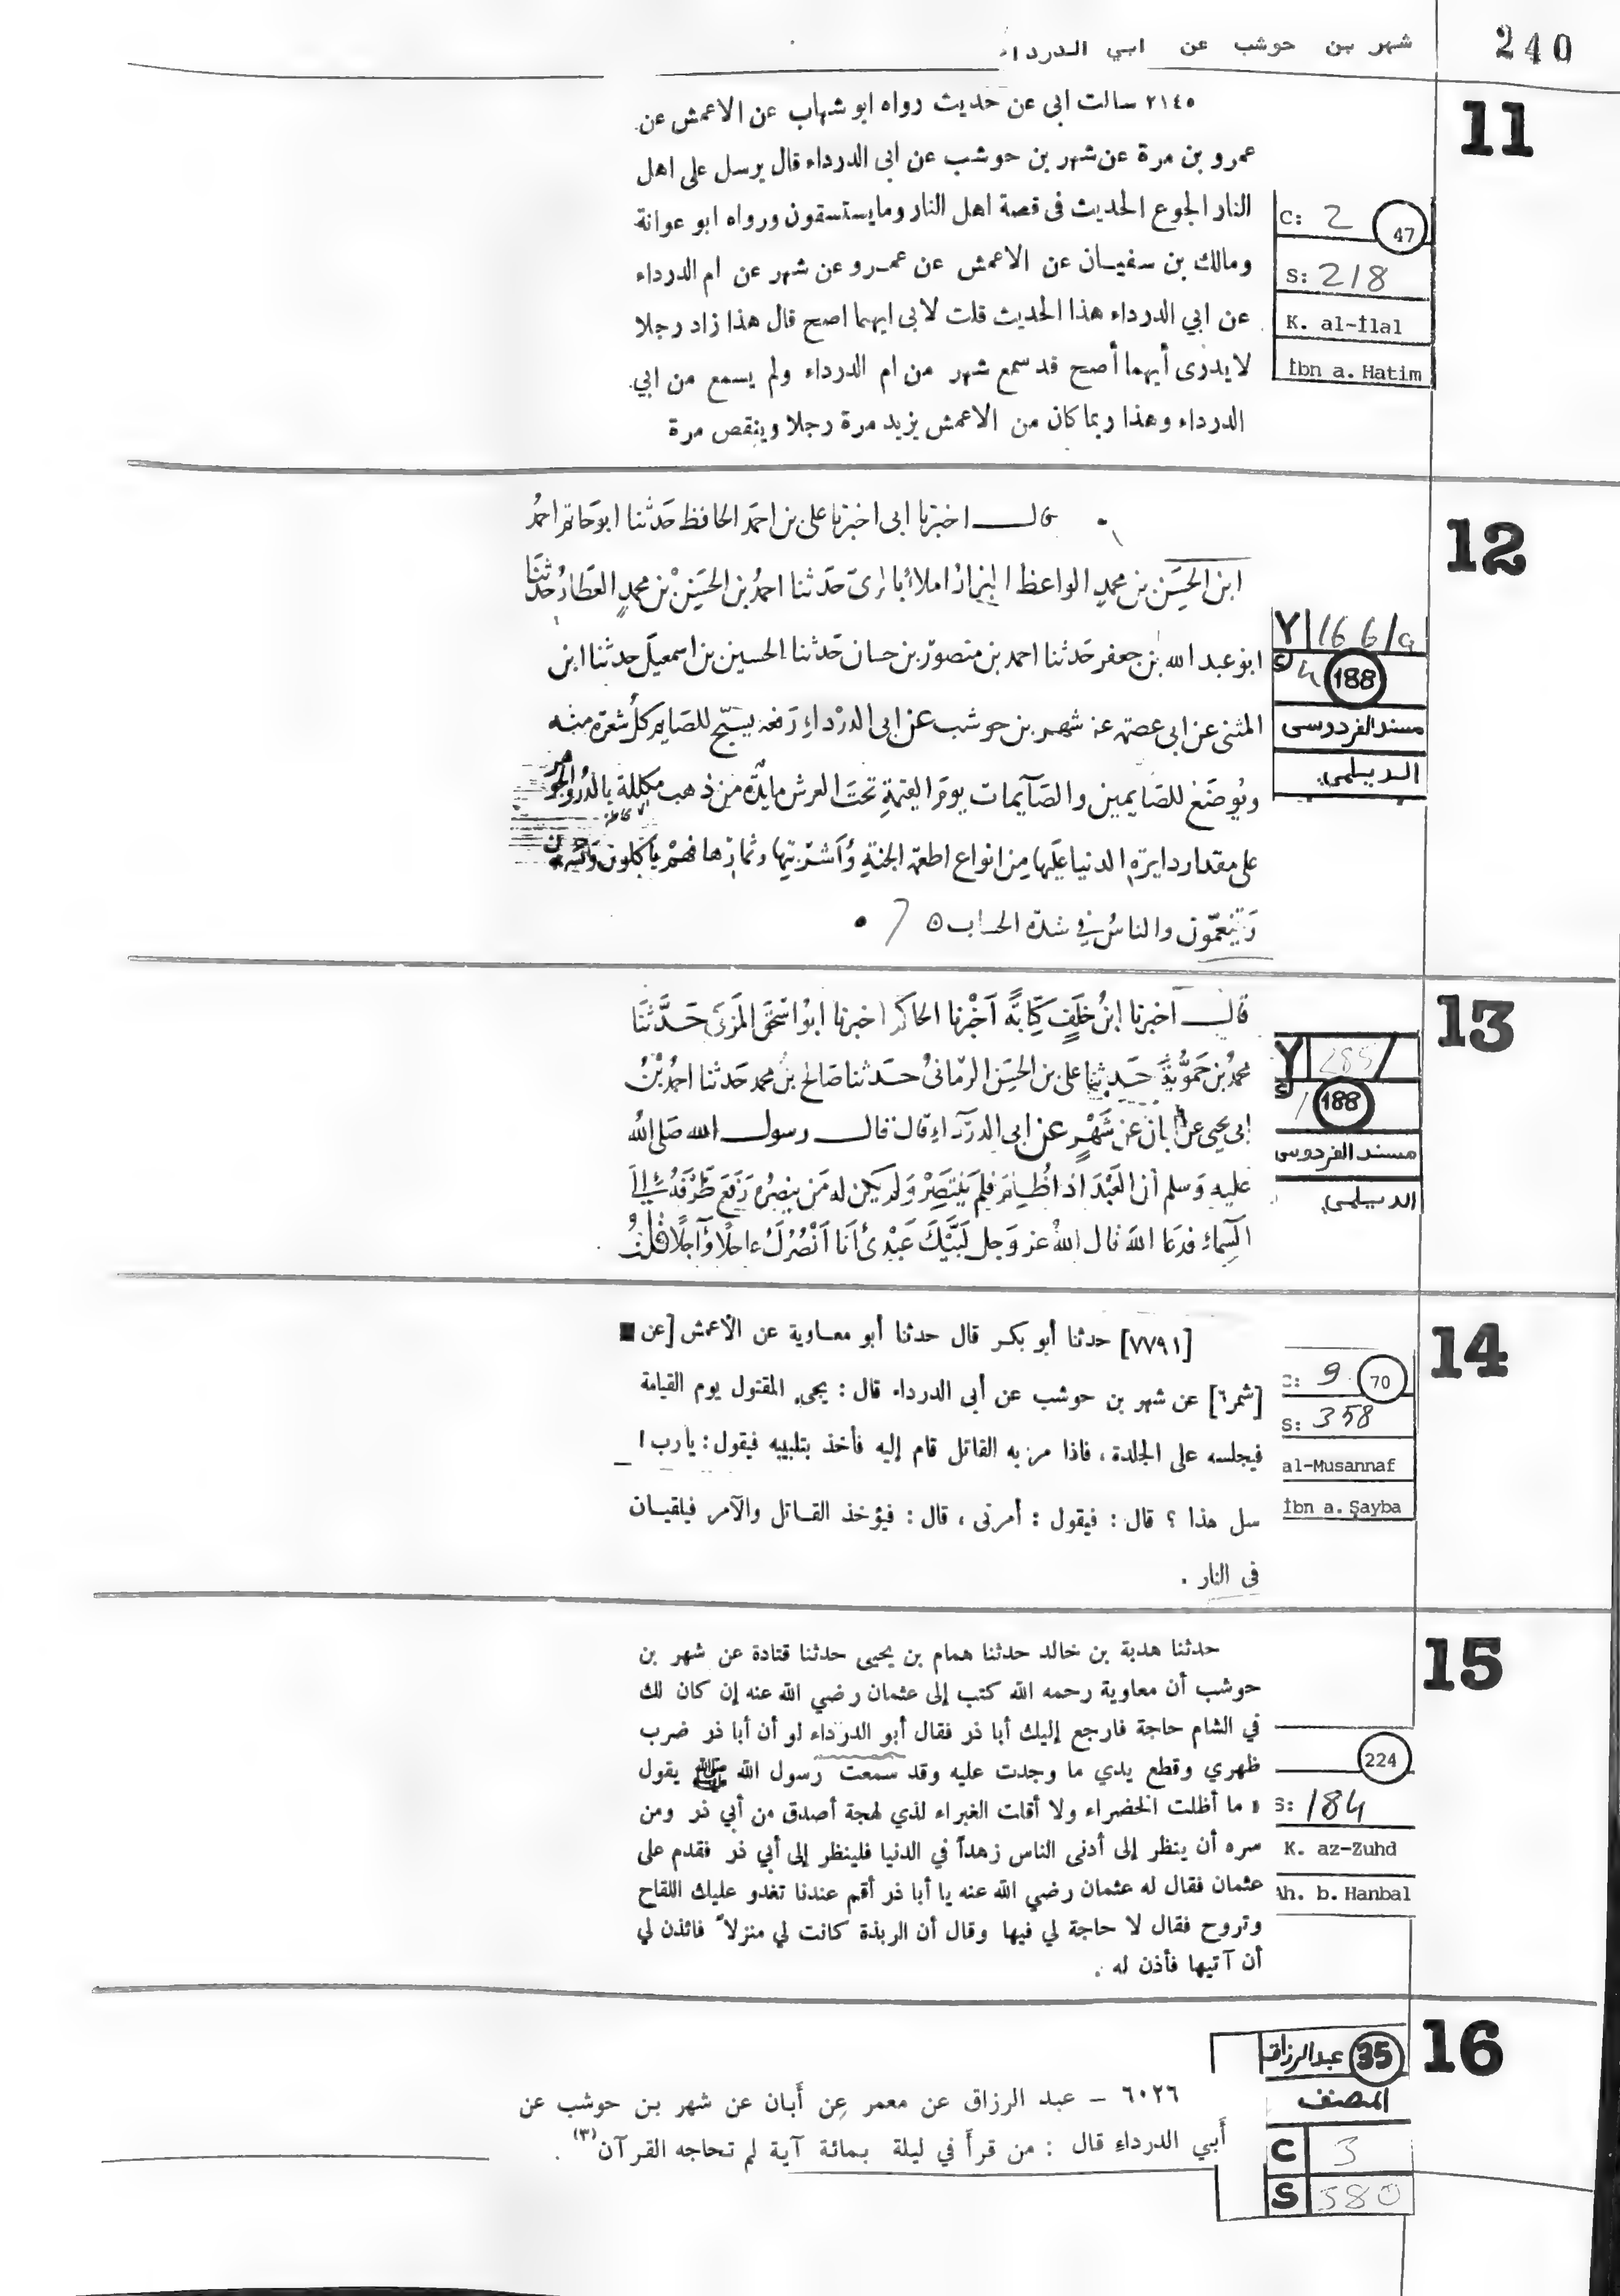 240
شهر بن حوشب عن ابي الدرداء
11
٢١٤٥ سالت ابى عن حديث رواه ابو شهاب عن الاعمش عن
عمرو بن مرة عن شهر بن حوشب عن ابى الدرداء قال يرسل على اهل
النار الجوع الحديث فى قصة اهل النار وما يستسقون ورواه ابو عوانة
ومالك بن سفيان عن الاعمش عن عمرو عن شهر عن ام الدرداء
عن ابي الدرداء هذا الحديث قلت لابى ايهما اصح قال هذا زاد رجلا
لا يدرى أيهما أصح قد سمع شهر من ام الدرداء ولم يسمع من ابي
الدرداء وهذا ربما كان من الاعمش يزيد مرة رجلا وينقص مرة
C: 2 47
S: 218
K. al-İlal
İbn a. Hatim
12
قال اخبرنا ابى اخبرنا على بن احمد الحافظ حدثنا ابو حاتم احمد
ابن الحسن بن محمد الواعظ البزاز املاءً بالرى حدثنا احمد بن الحسين بن محمد العطار حدثنا
ابو عبد الله بن جعفر حدثنا احمد بن منصور بن حسان حدثنا الحسين بن اسمعيل حدثنا ابن
المثنى عن ابى عصمة عن شهر بن حوشب عن ابى الدرداء رفعه يسبح للصايم كل شعرة منه
ويوضع للصايمين والصآيمات يوم القيمة تحت العرش مايدة من ذهب مكللة بالدر والجوهر
على مقدار دايرة الدنيا عليها من انواع اطعمة الجنة وأشربتها وثمارها فهم يأكلون ويشربون
ويتنعمون والناس في شدة الحساب
Y 166/a
188
مسند الفردوسى
الديلمى
13
قال اخبرنا ابن خلف كتابةً أخبرنا الحاكم اخبرنا ابو اسحق المزكى حدثنا
محمد بن حمويه حدثنا على بن الحسن الرمانى حدثنا صالح بن محمد حدثنا احمد بن
ابى يحيى عن ابان عن شهر عن ابى الدرداء قال قال رسول الله صلى الله
عليه وسلم ان العبد اذا ظلم فلم ينتصر ولم يكن له من ينصره رفع طرفه الى
السماء فدعا الله قال الله عز وجل لبيك عبدى أنا أنصرك عاجلا وآجلا
Y 285/
188
مسند الفردوسى
الديلمى
14
[٧٧٩١] حدثنا أبو بكر قال حدثنا أبو معاوية عن الأعمش [عن
[شمر٦] عن شهر بن حوشب عن أبى الدرداء قال : يجىء المقتول يوم القيامة
فيجلسه على الجلدة ، فاذا مر به القاتل قام إليه فأخذ بتلبيبه فيقول : يا رب !
سل هذا ؟ قال : فيقول : أمرنى ، قال : فيؤخذ القاتل والآمر فيلقيان
فى النار .
C: 9 70
S: 358
al-Musannaf
İbn a. Şayba
15
حدثنا هدبة بن خالد حدثنا همام بن يحيى حدثنا قتادة عن شهر بن
حوشب أن معاوية رحمه الله كتب إلى عثمان رضي الله عنه إن كان لك
في الشام حاجة فارجع إليك أبا ذر فقال أبو الدرداء لو أن أبا ذر ضرب
ظهري وقطع يدي ما وجدت عليه وقد سمعت رسول الله ﷺ يقول
« ما أظلت الخضراء ولا أقلت الغبراء لذي لهجة أصدق من أبي ذر ومن
سره أن ينظر إلى أدنى الناس زهداً في الدنيا فلينظر إلى أبي ذر فقدم على
عثمان فقال له عثمان رضي الله عنه يا أبا ذر أقم عندنا تغدو عليك اللقاح
وتروح فقال لا حاجة لي فيها وقال أن الربذة كانت لي منزلاً فائذن لي
أن آتيها فأذن له .
224
S: 184
K. az-Zuhd
Ah. b. Hanbal
16
٦٠٢٦ – عبد الرزاق عن معمر عن أبان عن شهر بن حوشب عن
أبي الدرداء قال : من قرأ في ليلة بمائة آية لم تحاجه القرآن (٣) .
35 عبدالرزاق
المصنف
C 3
S 380